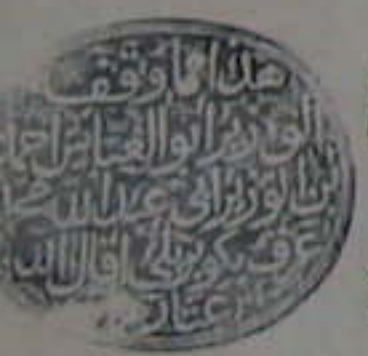 هذا ما وقف
الوزير ابو العباس احمد
ابن الوزير ابي عبد الله محمد
عرف بكوبريلي اقال الله
عثار